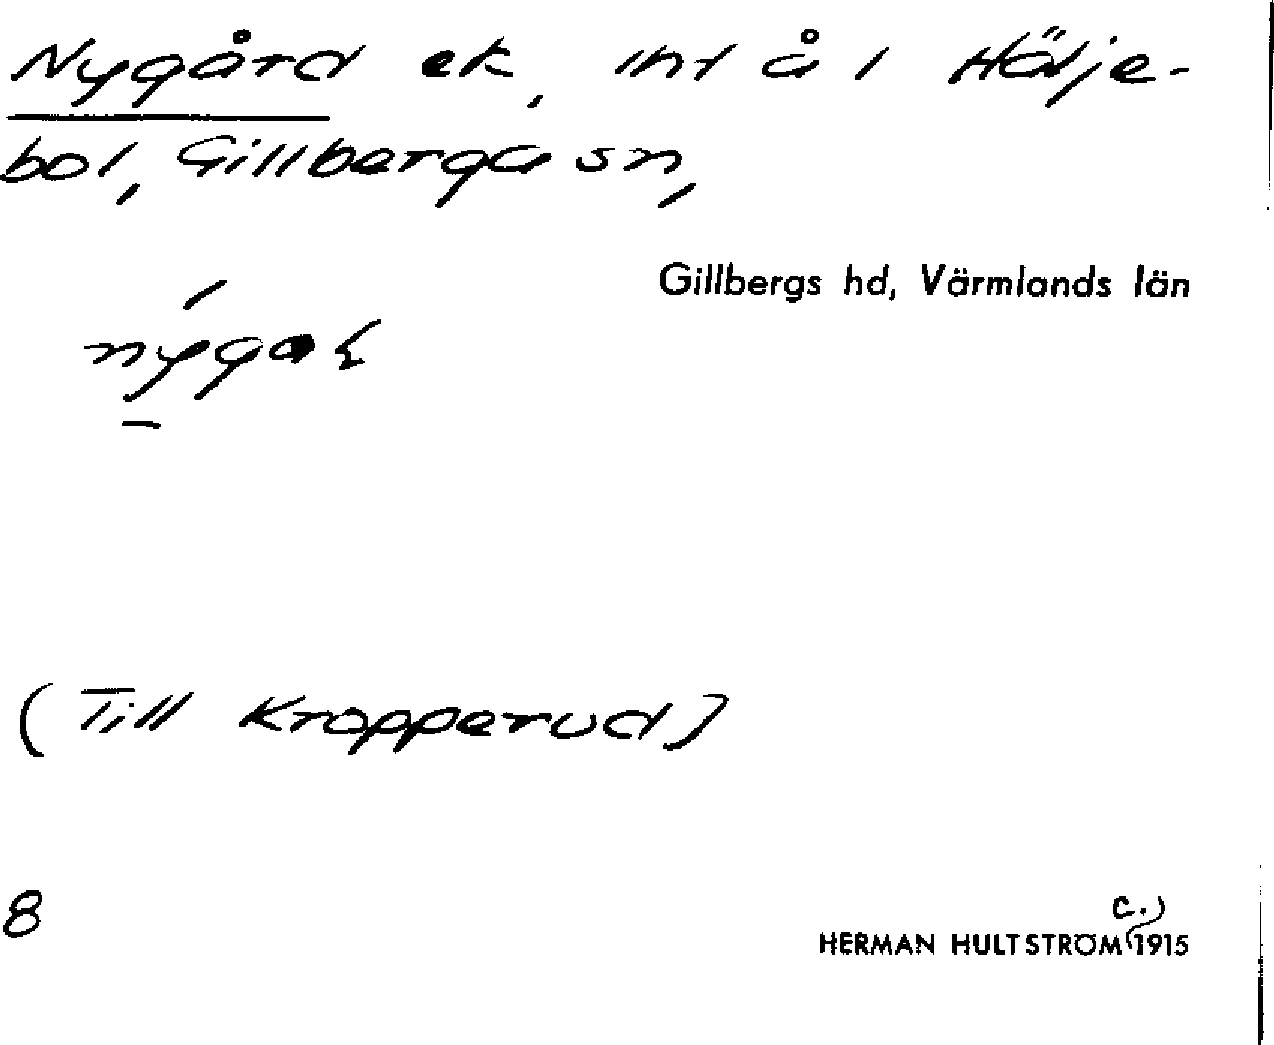 Nygård ek, int å i Hölje-
bol, Gillberga sn,
Gillbergs hd, Värmlands län
(Till Kropperud)
8
c.)
HERMAN HULTSTRÖM 1915